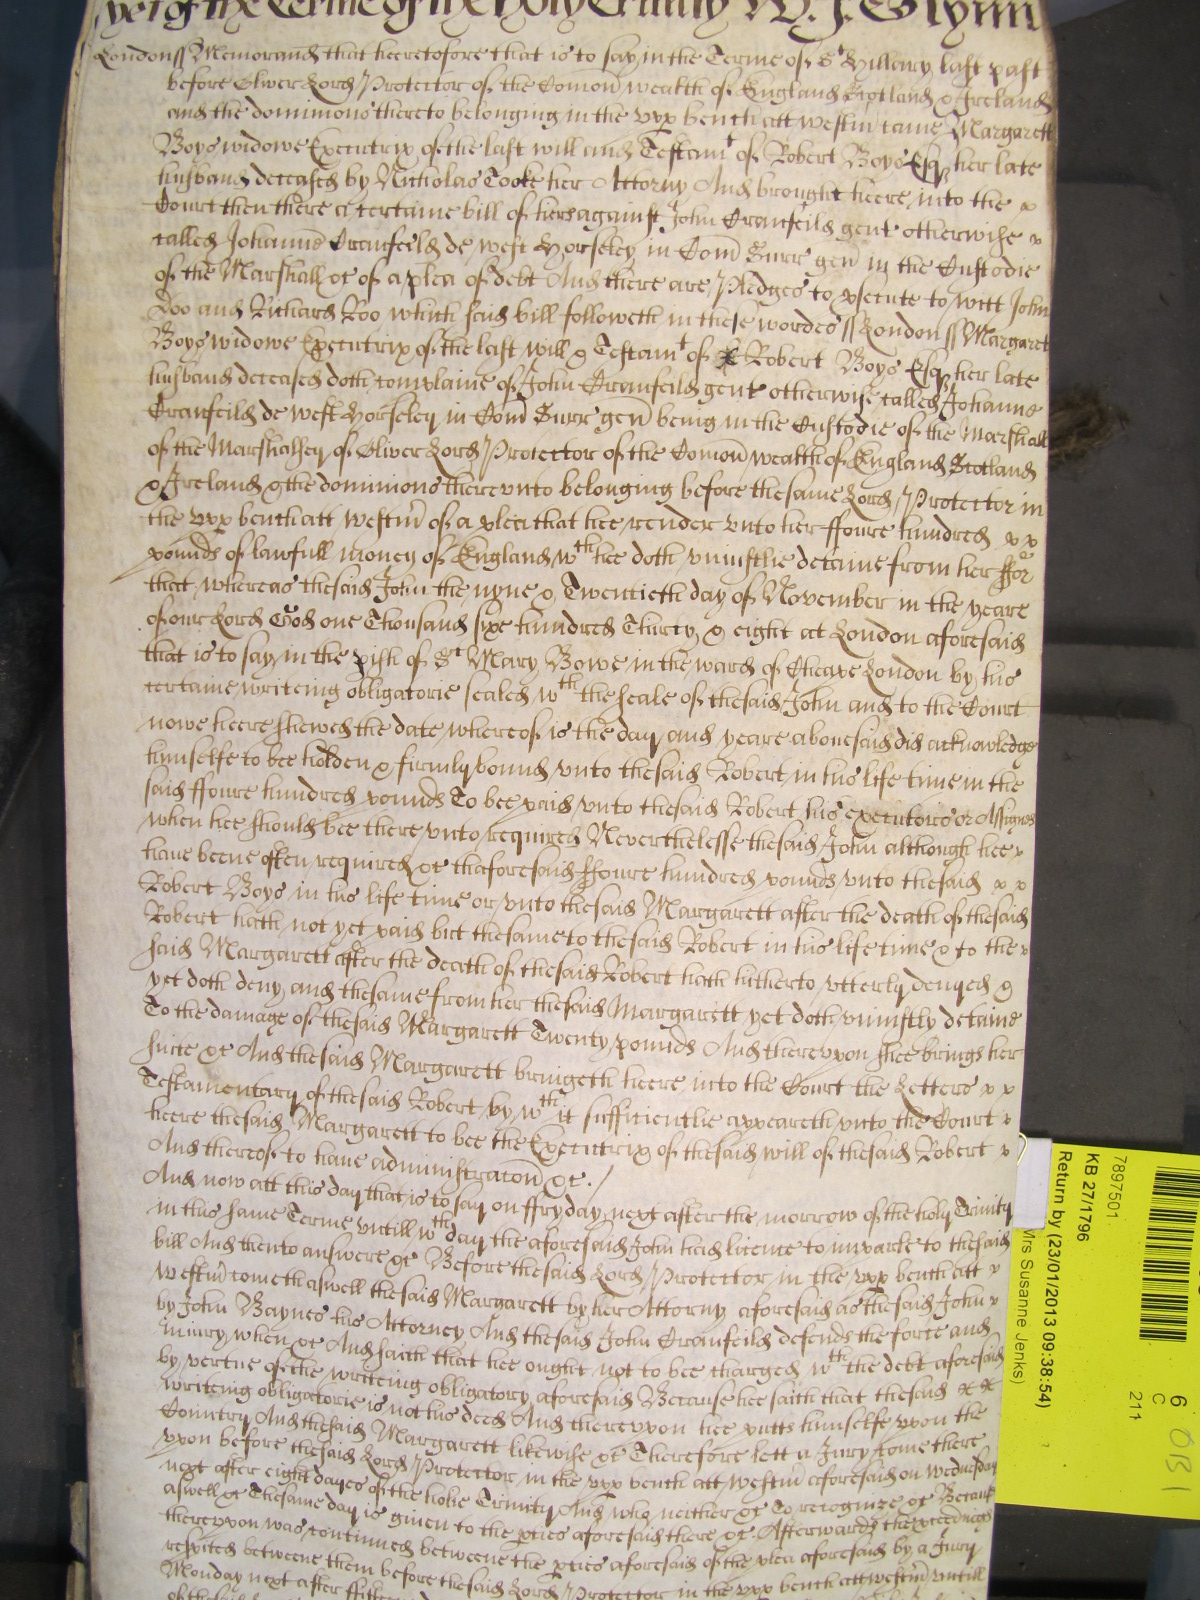 yet of the Terme of the holy Trinity W. J. Glynn
London ss Memorand that heeretofore that is to say in the Terme of St Hillary last past
before Oliver Lord Protector of the Comon wealth of England Scotland & Ireland
and the dominions thereto belonging in the upp bench att Westm came Margarett
Boys widowe Executrix of the last will and Testamt of Robert Boys Esqr her late
husband deceased by Nicholas Cooke her Attorny And brought heere into the x
Court then there a certaine bill of hers against John Cranfeild gent otherwise x
called Johanne Cranfeild de west Horseley in Com Surr gen in the Custodie
of the Marshall &c of a plea of debt And there are Pledges to psecute to witt John
Doo and Richard Roo which said bill followeth in these wordes ss London ss Margaret
Boys widowe Executrix of the last will & Testamt of Robert Boys Esqr her late
husband deceased doth complaine of John Cranfeild gent otherwise called Johanne
Cranfeild de west Horseley in Com Surr gen being in the Custodie of the Marshall
of the Marshalsey of Oliver Lord Protector of the Comon wealth of England Scotland
& Ireland & the dominions thereunto belonging before the same Lord Protector in
the upp bench att Westm of a plea that hee render unto her ffoure hundred x x
pounds of lawfull money of England wth hee doth uniustlie deteine from her ffor
that whereas the said John the nyne & Twentieth day of November in the yeare
of our Lord God one Thousand sixe hundred Thirty & eight at London aforesaid
that is to say in the pish of St Mary Bowe in the ward of Cheape London by his
certaine writeing obligatorie sealed wth the seale of the said John and to the Court
nowe heere shewed the date whereof is the day and yeare abovesaid did acknowledge
himselfe to bee holden & firmly bound unto the said Robert in his life time in the
said ffoure hundred pounds To bee paid unto the said Robert his executors or Assignes
when hee should bee there unto required Neverthelesse the said John although hee x
have beene often required &c thaforesaid ffoure hundred pounds unto the said x x
Robert Boys in his life time or unto the said Margarett after the death of the said
Robert hath not yet paid but the same to the said Robert in his life time & to the x
said Margarett after the death of the said Robert hath hitherto utterly denyed &
yet doth deny and the same from her the said Margarett yet doth uniustly detaine
To the damage of the said Margarett Twenty pounds And thereupon shee brings her
suite &c And the said Margarett bringeth heere into the Court the Letters x x
Testamentary of the said Robert by wth it sufficientlie appeareth unto the Court x
heere the said Margarett to bee the Executrix of the said will of the said Robert x
And thereof to have administracon &c. /
And now att this day that is to say on ffryday next after the morrow of the holy Trinity
in this same Terme untill wth day the aforesaid John had licence to imparle to the said
bill And then to answere &c Before the said Lord Protector in the upp bench att x
Westm cometh aswell the said Margarett by her Attorny aforesaid as the said John x
by John Baynes his Attorney And the said John Cranfeild defends the force and
iniury when &c And saith that hee ought not to bee charged wth the debt aforesaid
by vertue of the writeing obligatory aforesaid Because hee saith that the said x x
writeing obligatorie is not his deed And thereupon hee putts himselfe upon the
Country And the said Margarett likewise &c Therefore lett a Jury come there
upon before the said Lord Protector in the upp bench att Westm aforesaid on Wednesday
next after eight dayes of the holie Trinity And who neither &c To recognize &c Because
aswell &c The same day is given to the pties aforesaid there &c Afterwards the pceedings
thereupon was continued betweene the pties aforesaid of the plea aforesaid by a Jury
respited betweene them before the said Lord Protector in the upp bench att Westm untill
Monday next after
7897501
KB 27/1796
Return by (23/01/2013 09:38:54)
Mrs Susanne Jenks)
6
C
211